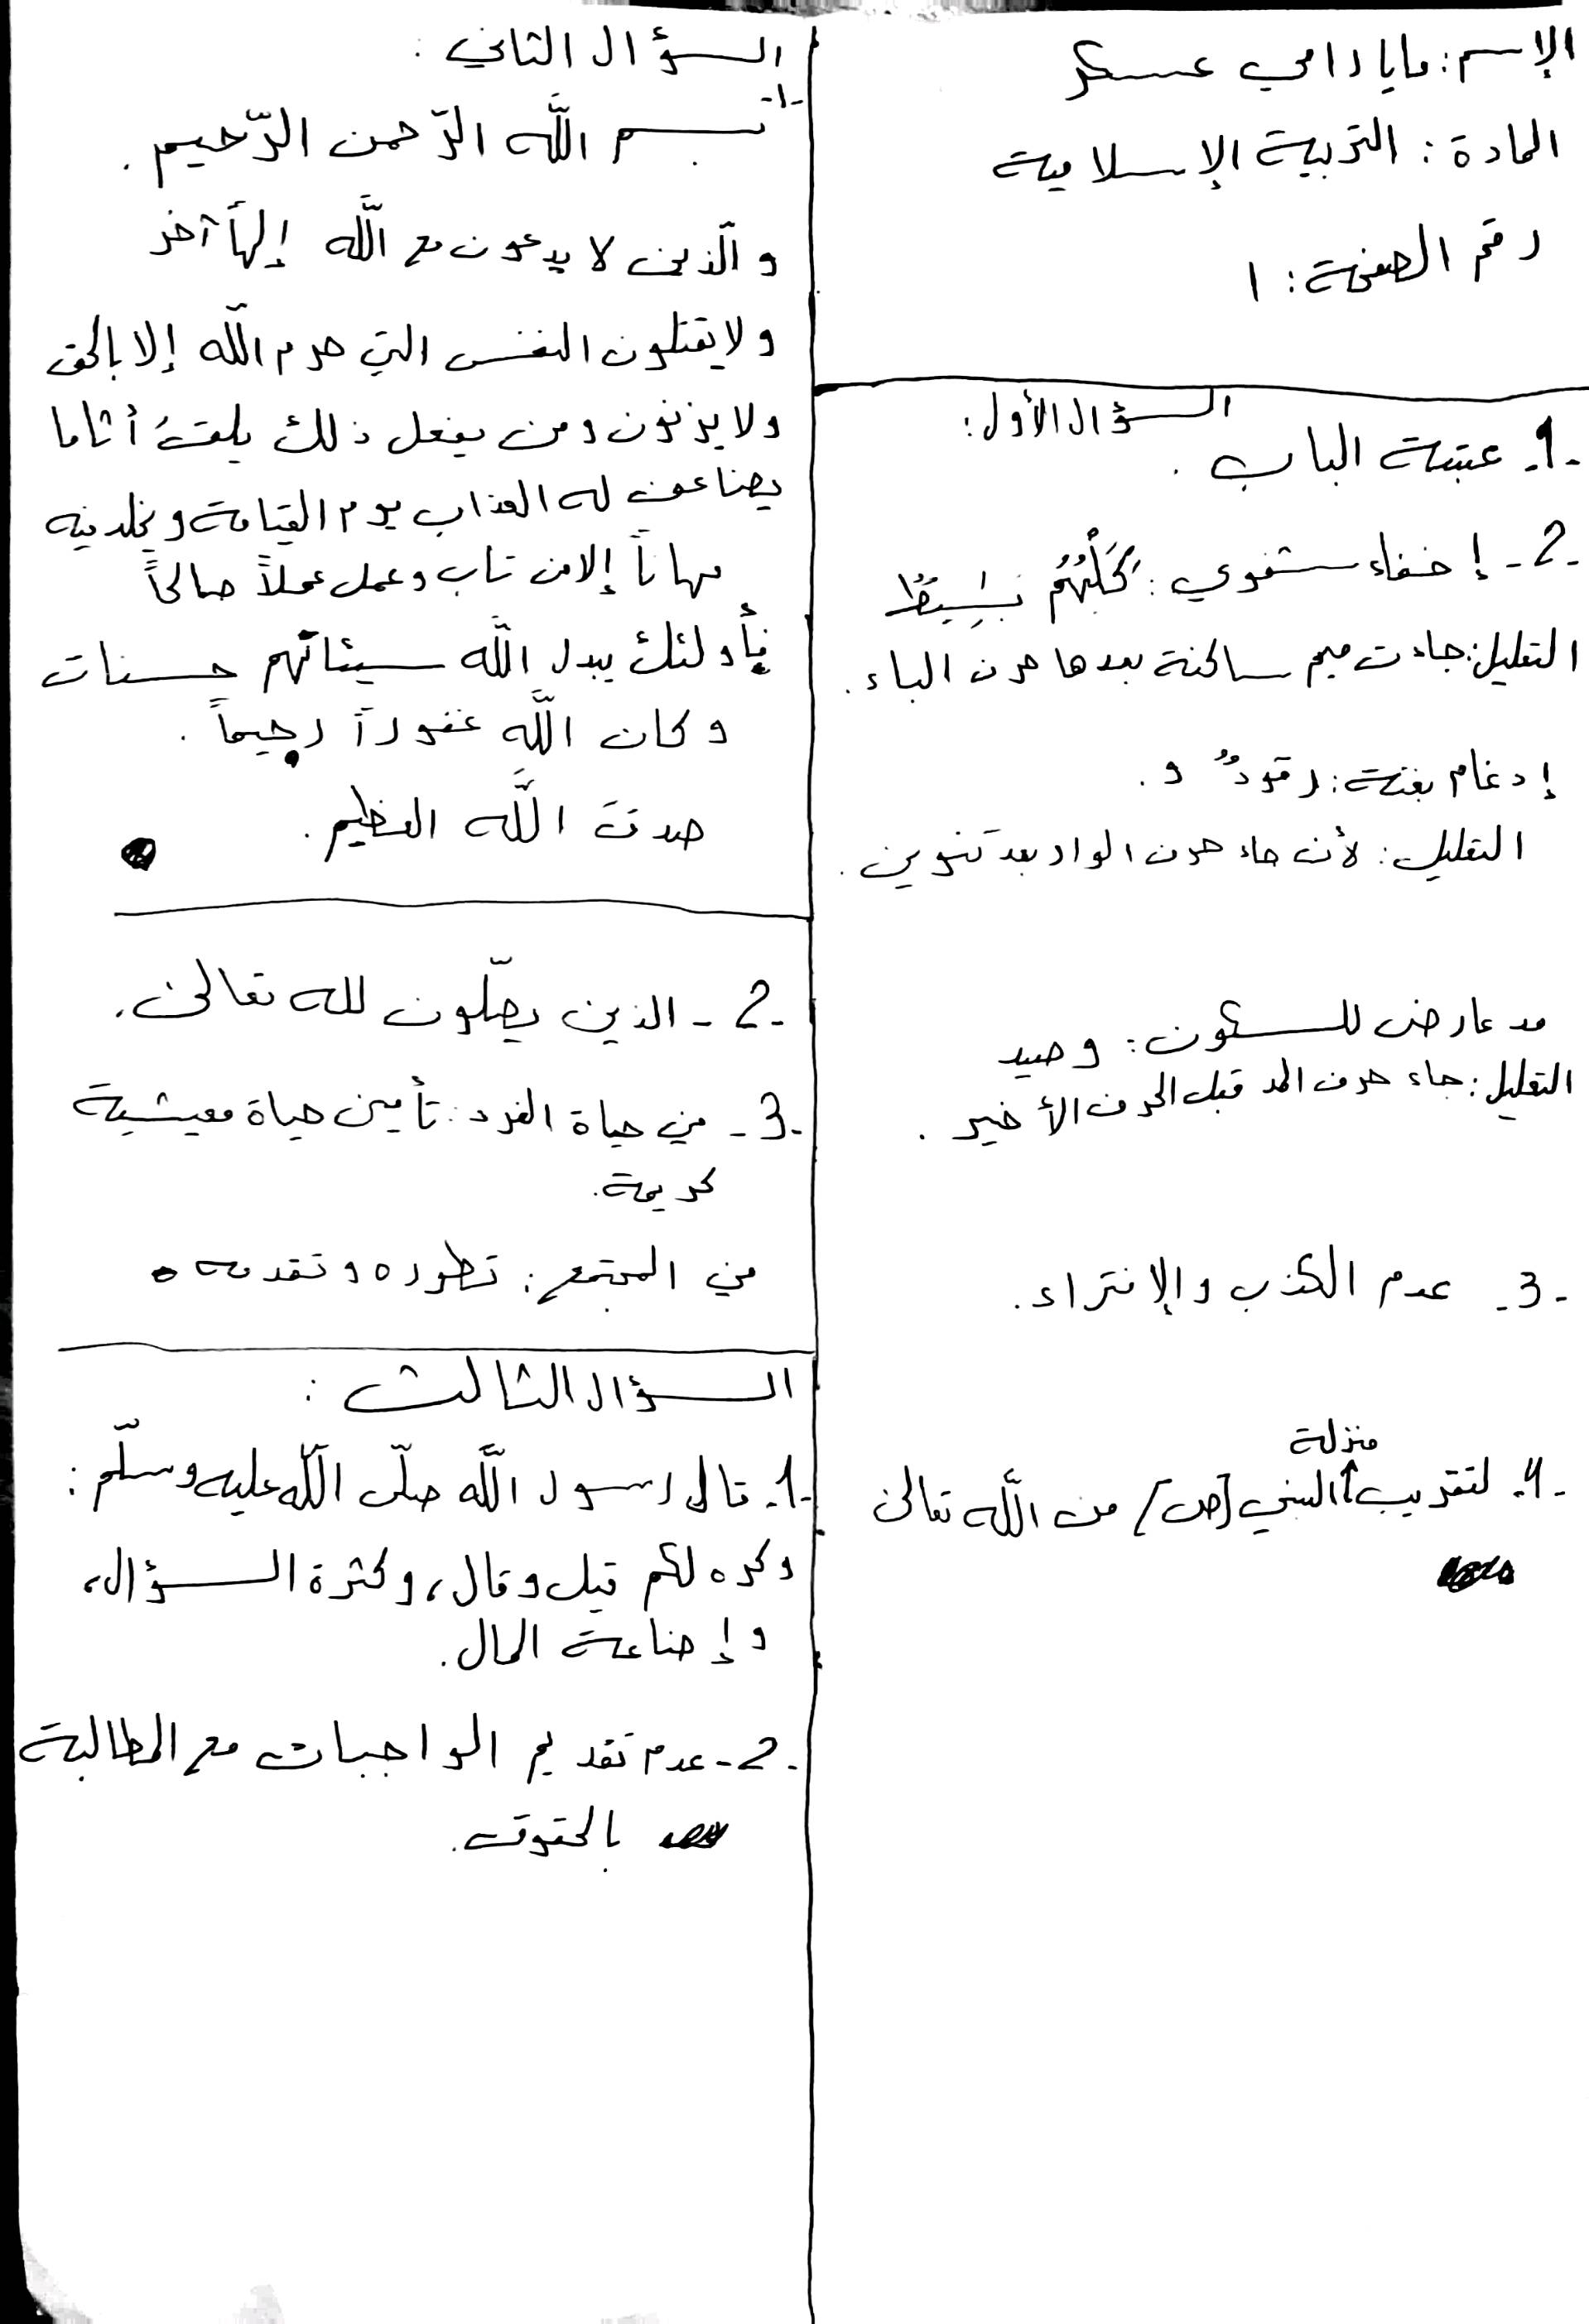 الإسم: مايا رامي عسكر
المادة: التربية الإسلامية
رقم الصفحة: ١
السؤال الأول:
-1- عتبة الباب.
-2- إخفاء شفوي: كَلْبُهُمْ بَاسِطٌ
التعليل: جاءت ميم ساكنة بعدها حرف الباء.
إدغام بغنة: رقودٌ و.
التعليل: لأن جاء حرف الواو بعد تنوين.
مد عارض للسكون: وصيد
التعليل: جاء حرف المد قبل الحرف الأخير.
-3- عدم الكذب والإفتراء.
-4- لتقريب منزلة النبي [ص] من اللّه تعالى
السؤال الثاني:
-1-
بسم اللّه الرّحمن الرّحيم.
والّذين لا يدعون مع اللّه إلهاً آخر
ولا يقتلون النفس التي حرم اللّه إلا بالحق
ولا يزنون ومن يفعل ذلك يلقَ أثاما
يضاعف له العذاب يوم القيامة ويخلد فيه
مهاناً إلا من تاب وعمل عملاً صالحاً
فأولئك يبدل اللّه سيئاتهم حسنات
وكان اللّه غفوراً رحيماً.
صدق اللّه العظيم.
-2- الذين يصلّون لله تعالى.
-3- في حياة الفرد: تأمين حياة معيشية
كريمة.
في المجتمع: تطوره وتقدمه.
السؤال الثالث:
-1- قال رسول اللّه صلّى اللّه عليه وسلّم:
وكره لكم قيل وقال، وكثرة السؤال،
وإضاعة المال.
-2- عدم تقديم الواجبات مع المطالبة
بالحقوق.